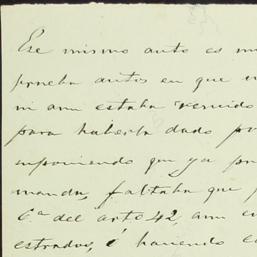 Ese mismo auto es
prueba autos en que
ni aun estaba vencido
para haberla dado
suponiendo que ya
manda, faltaba que
6.ª del arto 42, aun
estrados, ó haciendo